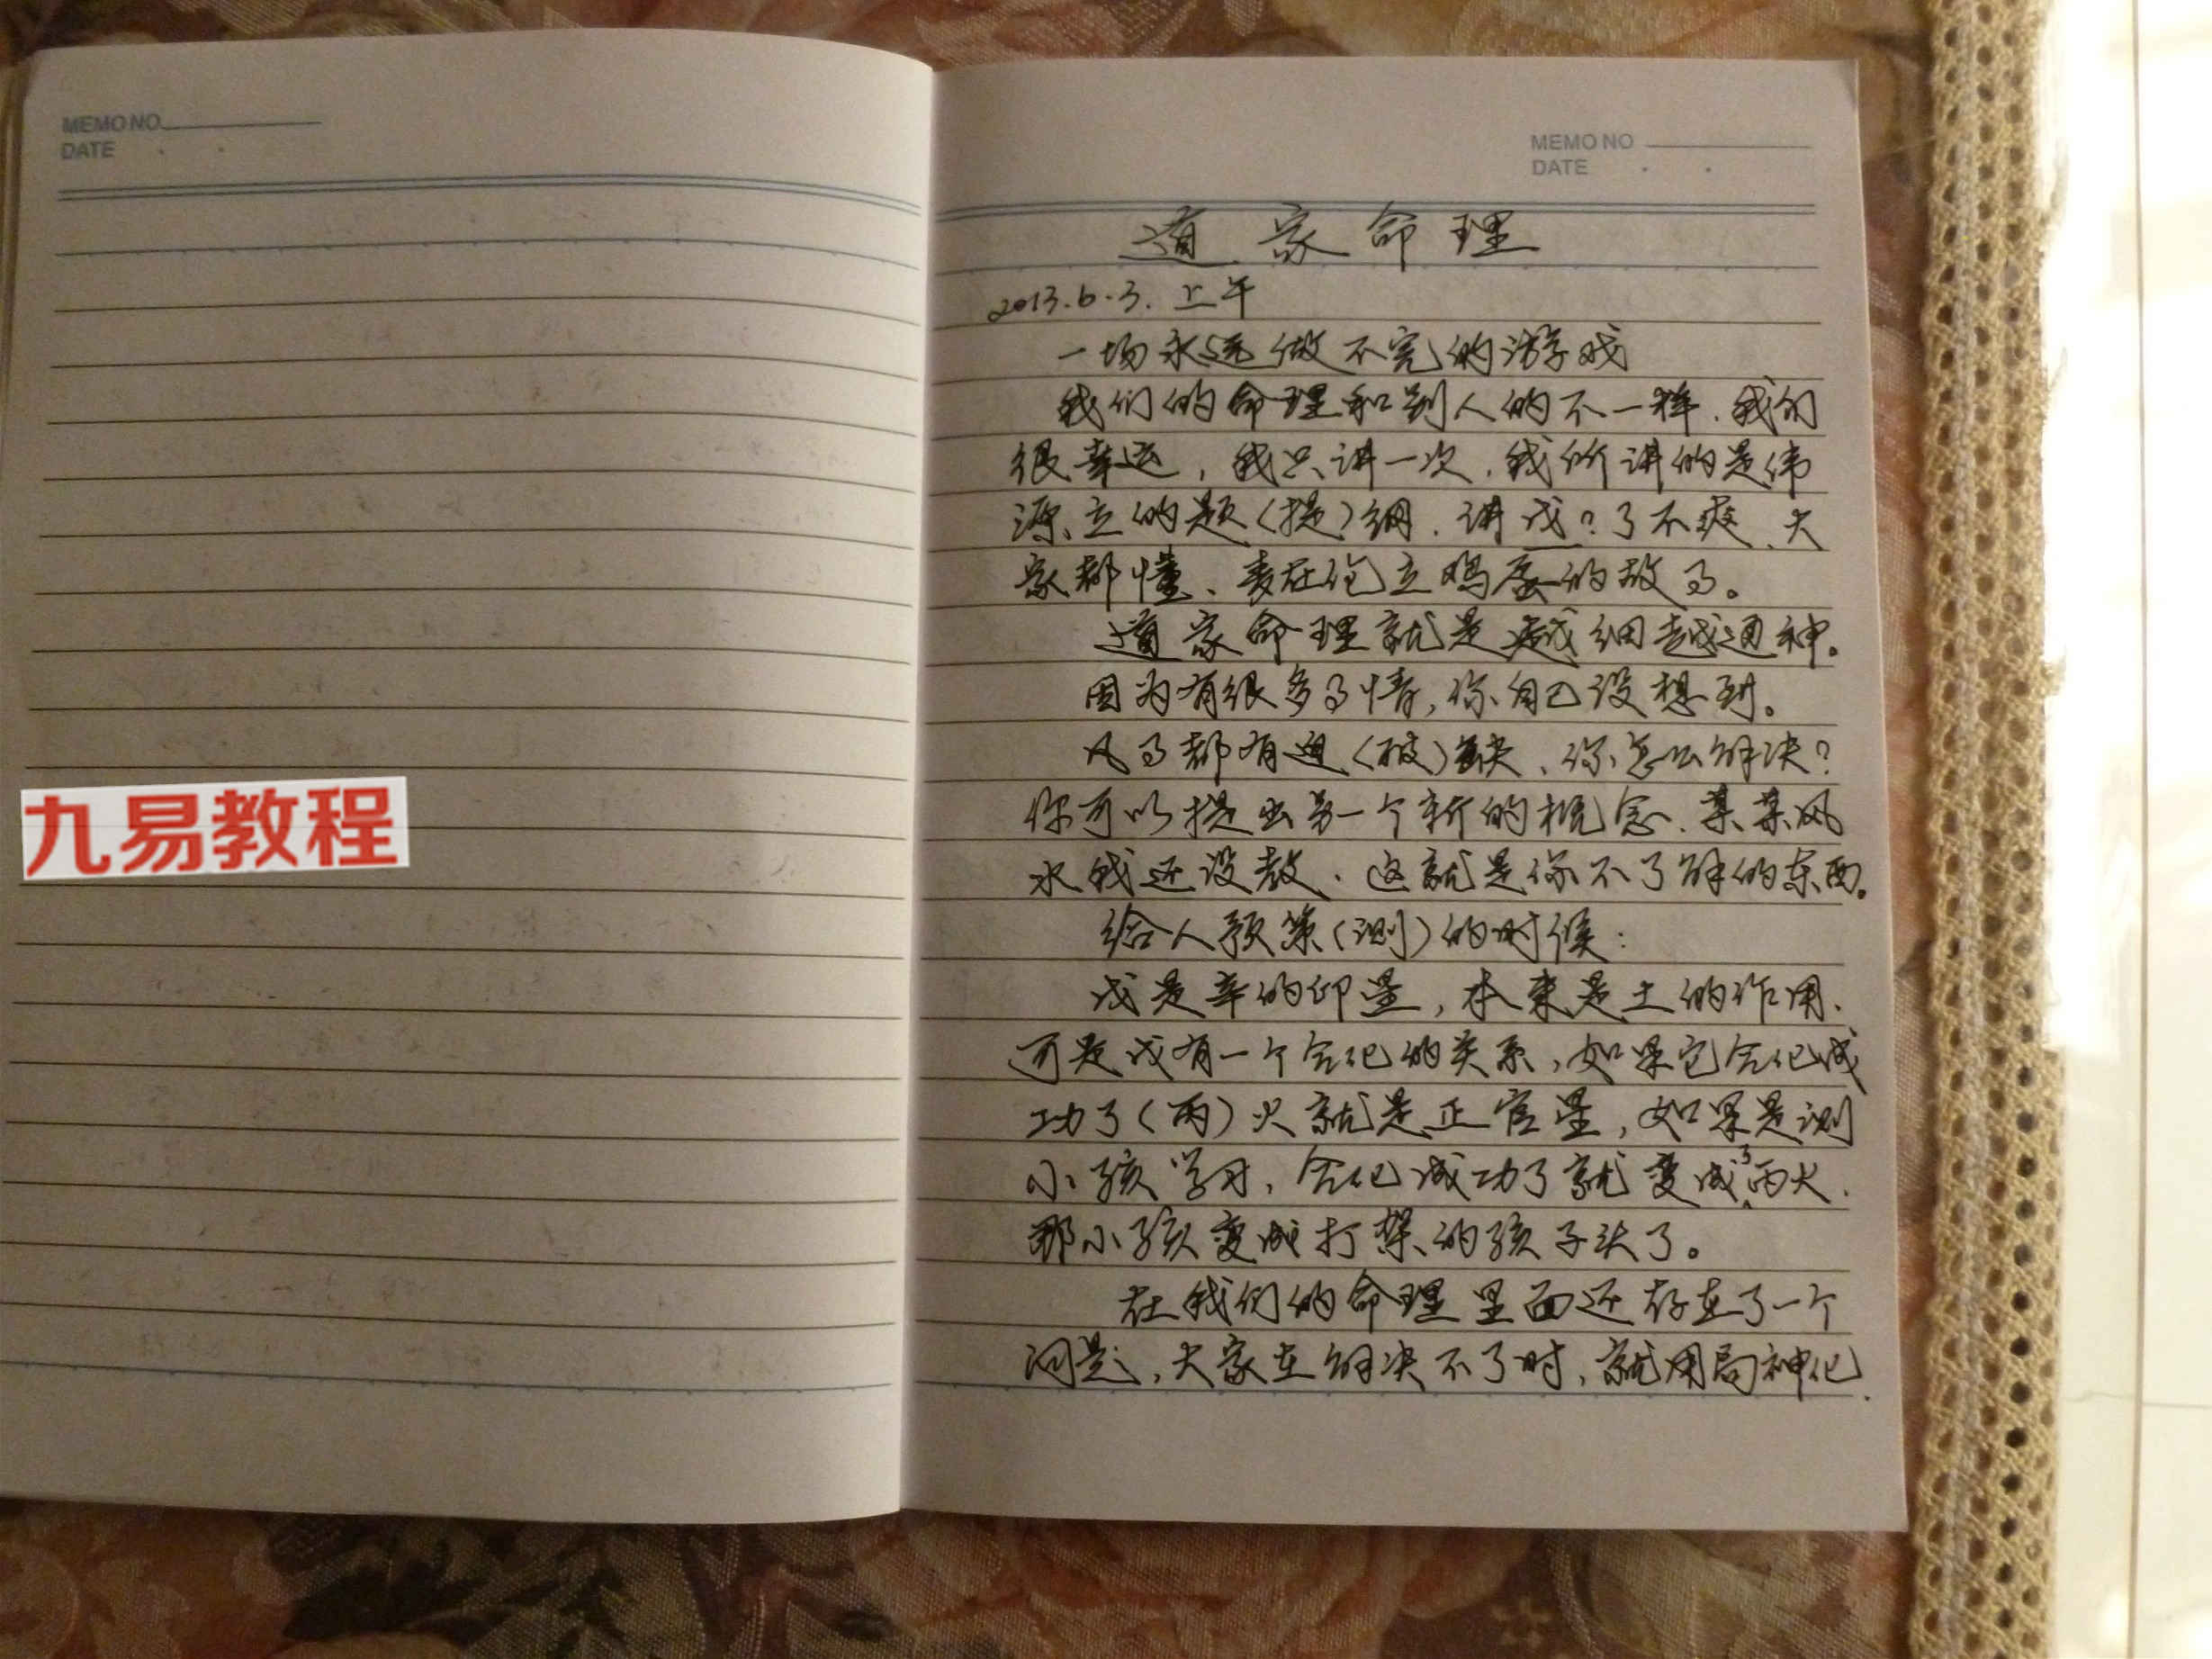 MEMO NO
DATE
九易教程
MEMO NO
DATE
道家命理
2013.6.3. 上午
一场永远做不完的游戏
我们的命理和别人的不一样.我们
很幸运,我只讲一次.我所讲的是伟
源立的题(提)纲.讲戊?了不疲、大
家都懂、表在他立鸡蛋的故了。
道家命理就是越细越通神。
因为有很多了情,你自己没想到。
凡了都有迫(破)缺、你怎么解决?
你可以提出另一个新的概念.某某风
水我还没教.这就是你不了解的东西。
给人预策(测)的时候:
戊是辛的印星,本来是土的作用、
可是戊有一个合化的关系,如果它合化成
功了(丙)火就是正官星,如果是测
小孩学习、合化成功了就变成了丙火.
那小孩变成打架的孩子头了。
在我们的命理里面还存在了一个
问题,大家在解决不了时,就用局神化.